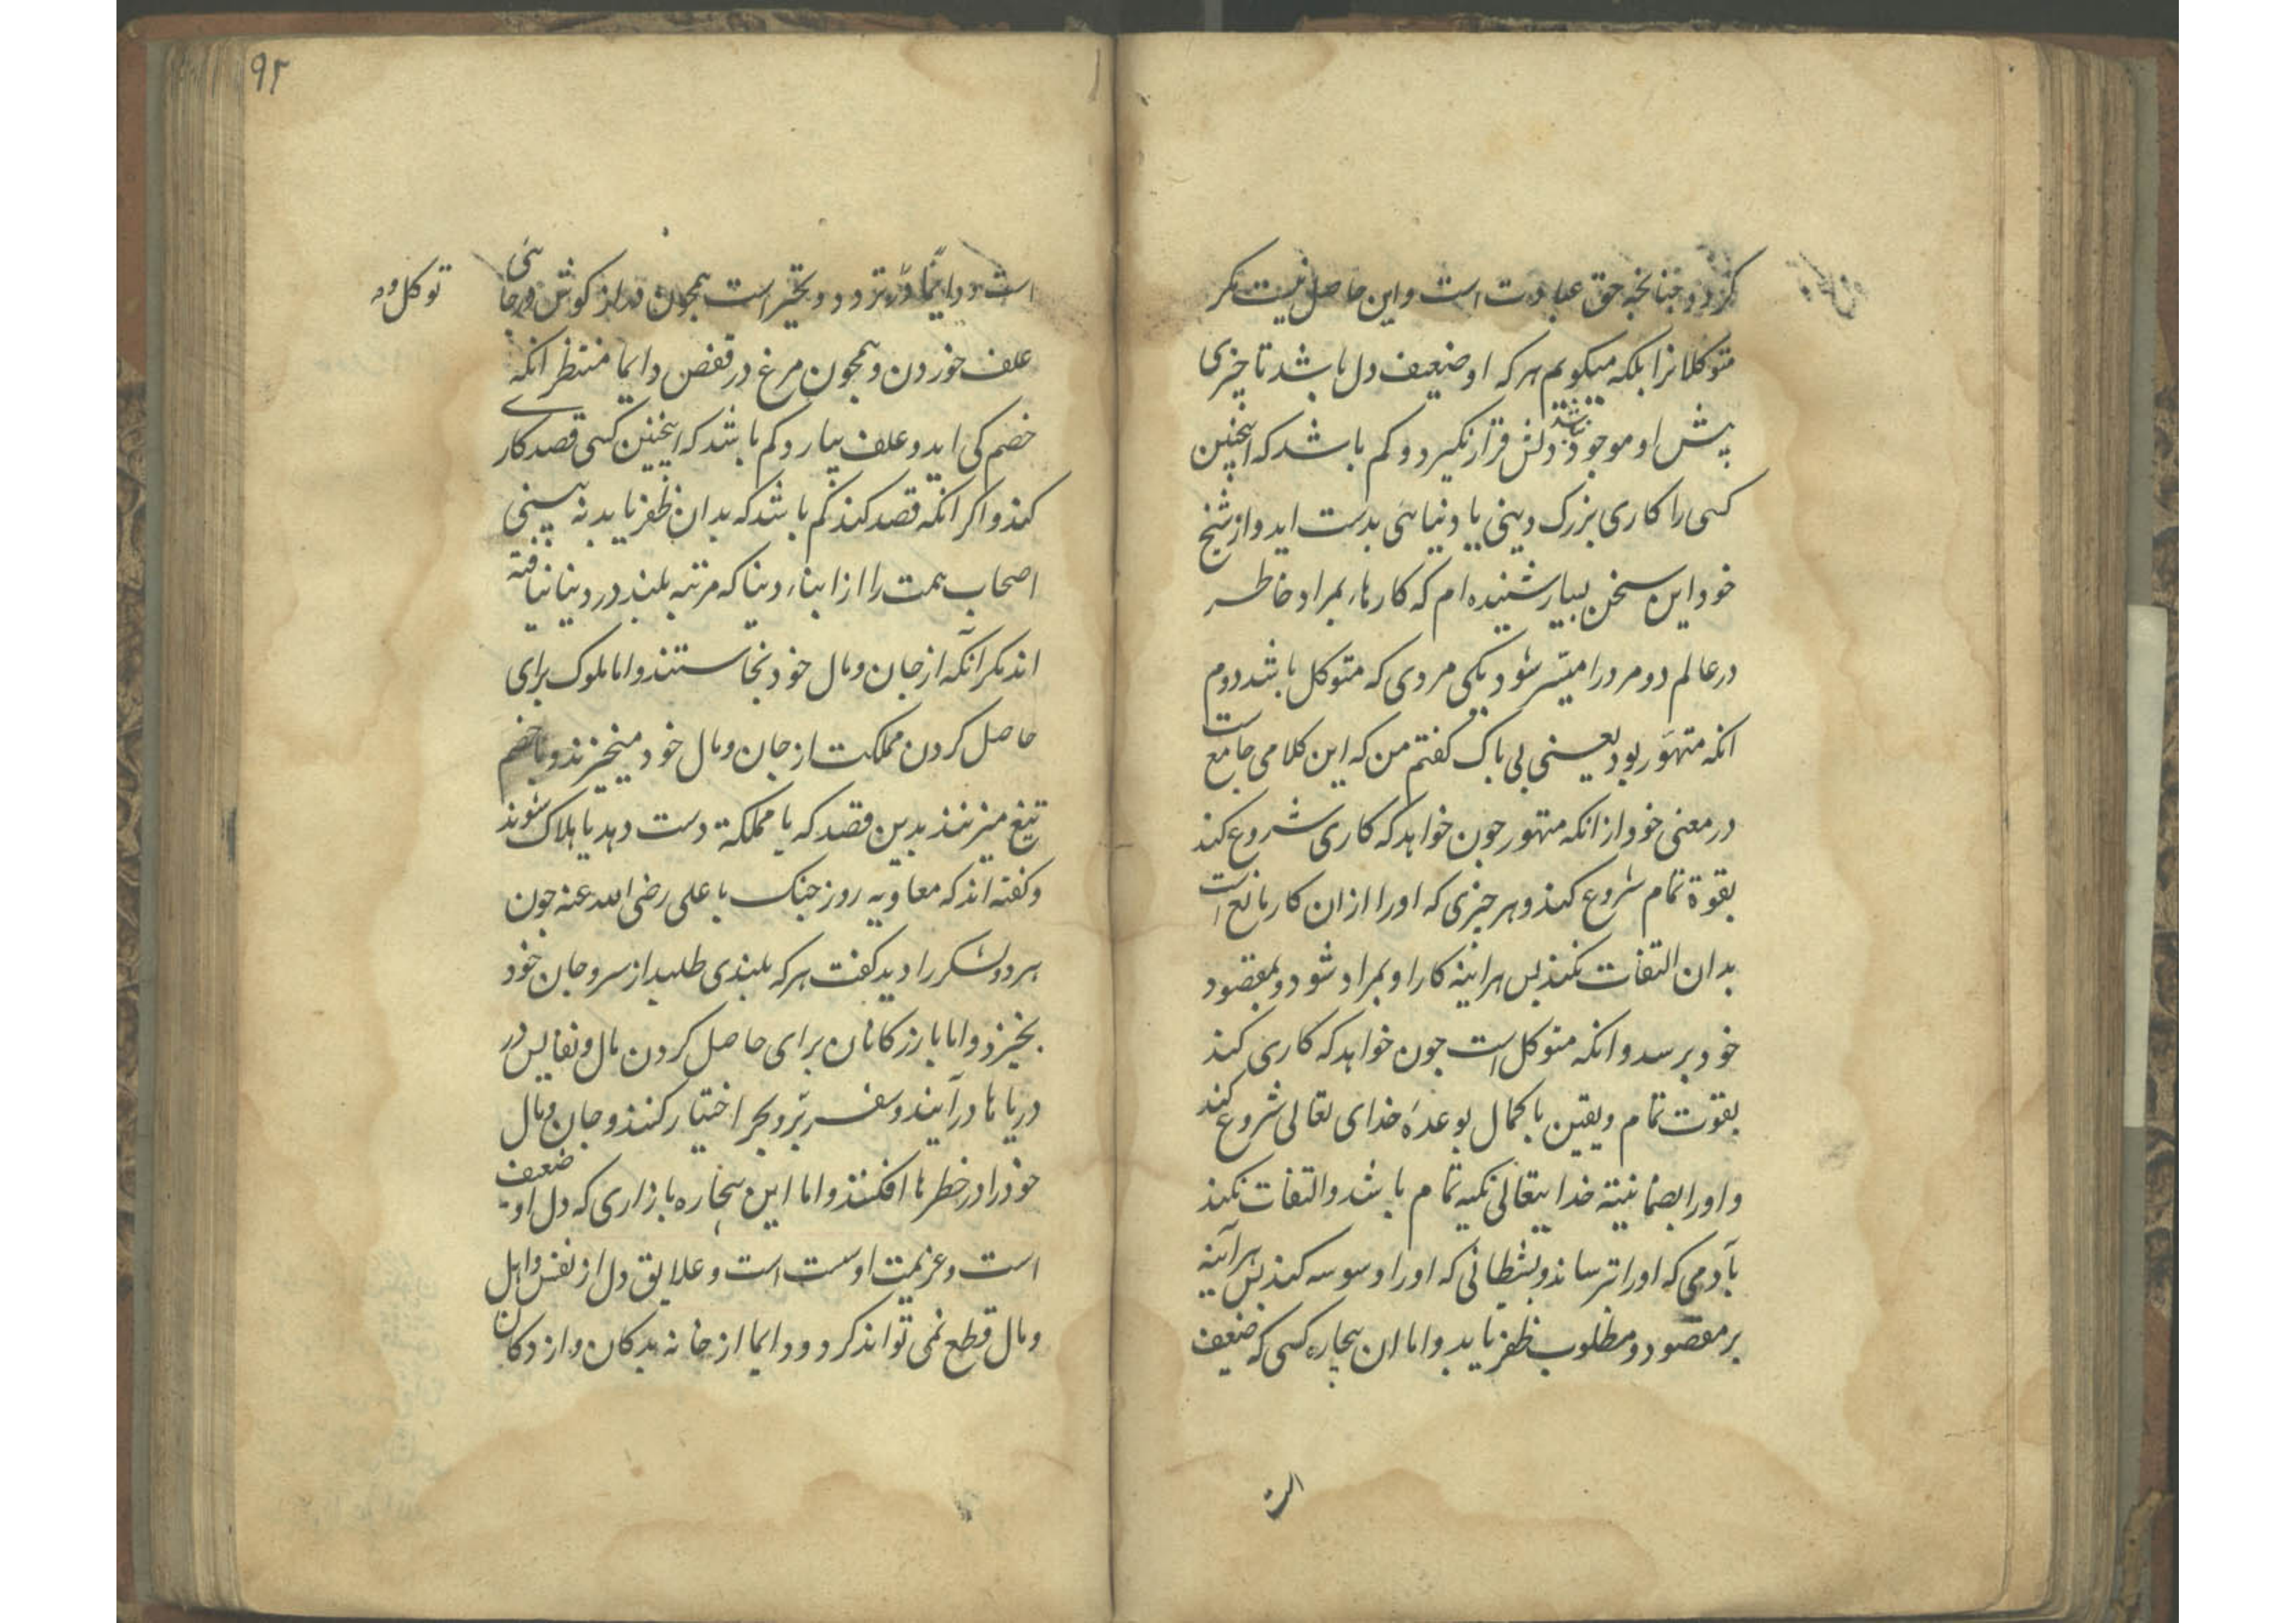 کردد چنانچه حق عبادت است و این حاصل نیست مکر
متوکلانرا بلکه میکویم هرکه او ضعیف دل باشد تا چیزی
پیش او موجود نباشد دلش قرار نکیرد و کم باشد که اینچنین
کسی را کاری بزرک دینی یا دنیائی بدست اید و از شیخ
خود این سخن بسیار شنیده ام که کارهاء بمراد خاطر
در عالم دو مرد را میسّر شود یکی مردی که متوکل باشد دوم
انکه متهوّر بود یعنی بی باک کفتم من که این کلامی جامع است
در معنی خود از انکه متهور چون خواهد که کاری شروع کند
بقوة تمام شروع کند و هر چیزی که او را از ان کار مانع است
بدان التفات نکند پس هراینه کار او بمراد شود و بمقصود
خود برسد و انکه متوکل است چون خواهد که کاری کند
بقوت تمام و یقین با کمال بوعدهٔ خدای تعالی شروع کند
و او را بضمانیّة خدایتعالی تکیه تمام باشد و التفات نکند
بآدمی که او را ترساند و بشیطانی که او را وسوسه کند پس هرآینه
بر مقصود و مطلوب ظفر یابد و اما ان بیچاره کسی که ضعیف
است
۹۲
توکل و
است و دایمًا در تردد و تحیر است همچون دراز کوش در جائی
علف خوردن و همچون مرغ در قفص دایما منتظر انکه
خصم کی اید و علف بیارد و کم باشد که اینچنین کسی قصد کاری
کند و اکر انکه قصد کند کم باشد که بدان ظفر یابد نه بینی
اصحاب همت را از ابناء دنیا که مرتبه بلند در دنیا نیافته
اند مکر آنکه از جان و مال خود نخاستند و اما ملوک برای
حاصل کردن مملکت از جان و مال خود میخیزند و با خصم
تیغ میزنند بدین قصد که یا مملکة دست دهد یا هلاک شوند
و کفته اند که معاویه روز جنک با علی رضی الله عنه چون
هر دو لشکر را دید کفت هرکه بلندی طلبد از سر و جان خود
بخیزد و اما بازرکانان برای حاصل کردن مال و نفایس در
دریاها درآیند و سفر برّ و بحر اختیار کنند و جان و مال
خود را در خطرها افکنند و اما این بیچاره بازاری که دل او ضعیف
است و عزیمت او سست است و علایق دل از نفس و اهل
و مال قطع نمی تواند کرد و دایما از خانه بدکان و از دکان